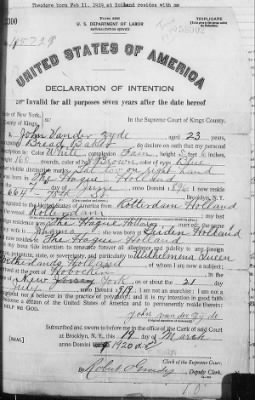 Theodore born Feb 11, 1919 at Holland resides with me
Form 2203
U. S. DEPARTMENT OF LABOR
NATURALIZATION SERVICE
TRIPLICATE
UNITED STATES OF AMERICA
DECLARATION OF INTENTION
Invalid for all purposes seven years after the date hereof
State of New York,
County of Kings, In the Supreme Court of Kings County.
I, John Vander Zyde aged 23 years,
occupation Bread Baker, do declare on oath that my personal
description is: Color White, complexion Fair, height 5 feet 6 inches,
weight 160 pounds, color of hair Brown, color of eyes Blue
other visible distinctive marks on right hand
I was born in The Hague Holland
on the 7 day of June, anno Domini 1896; I now reside
at Brooklyn, N. Y.
I emigrated to the United States of America from Rotterdam Holland
on the vessel Rotterdam; my last
foreign residence was The Hague Holland
wife was born at Leiden Holland
The Hague Holland
It is my bona fide intention to renounce forever all allegiance and fidelity to any foreign
prince, potentate, state, or sovereignty, and particularly to Wilhelmina Queen
Netherlands Holland, of whom I am now a subject;
I arrived at the port of Hoboken
New York on or about the 21 day
of July, anno Domini 1919; I am not an anarchist; I am not a
polygamist nor a believer in the practice of polygamy; and it is my intention in good faith
to become a citizen of the United States of America and to permanently reside therein:
SO HELP ME GOD.
Subscribed and sworn to before me in the office of the Clerk of said Court
at Brooklyn, N. Y., this 19 day of March
anno Domini 1920
[SEAL]
Clerk of the Supreme Court.
By Deputy Clerk.